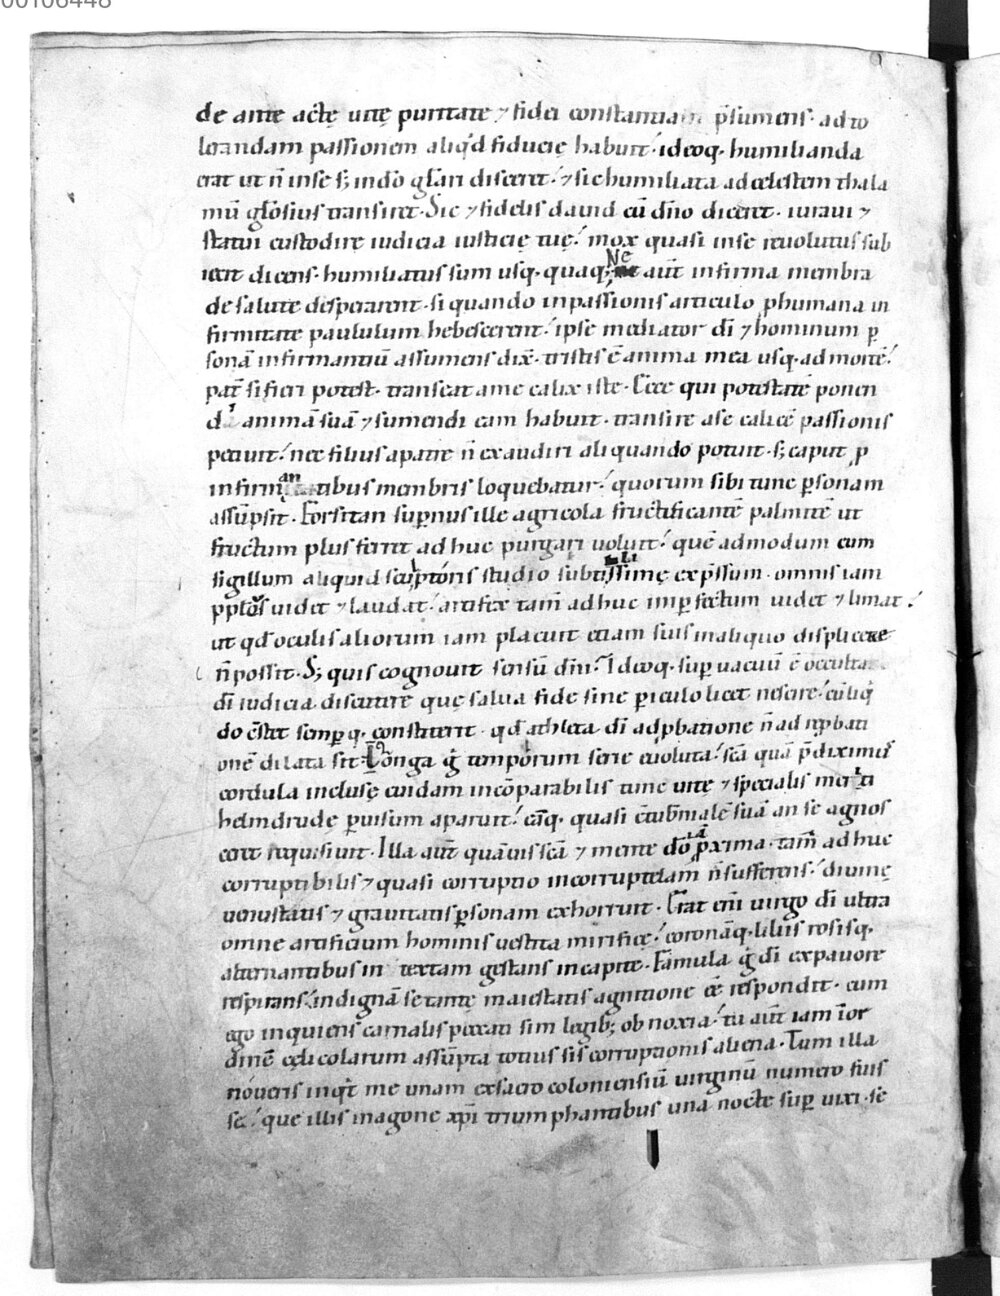 00106448
de ante actę uitę puritate ⁊ fidei constantiam p̄sumens· ad to
lerandam passionem aliq'd fiducię habuit· ideoq· humilianda
erat ut n̄ in se s; in dño gl̄ari disceret· ⁊ sic humiliata ad celestem thala
mū gl̄osius transiret· Sic ⁊ fidelis dauid cū dño diceret· iuraui ⁊
statui custodire iudicia iusticię tuę· mox quasi in se reuolutus sub
iecit dicens· humiliatus sum usq· quaq; Ne aut̄ infirma membra
de salute desperarent· si quando in passionis articulo p humana in
firmitate paululum hebescerent· ipse mediator dī ⁊ hominum p̱
sonā infirmantiū assumens dix̄· tristis ē anima mea usq· ad mortē·
pat̄ si fieri potest· transeat a me calix iste· Ecce qui potestatē ponen
di animā suā ⁊ sumendi eam habuit· transire a se calicē passionis
petiuit· nec filius a patre n̄ exaudiri aliquando potuit· s; caput p
infirmantibus membris loquebatur· quorum sibi tunc p̱sonam
assūpsit· Forsitan sup̱nus ille agricola fructificantē palmitē ut
fructum plus ferret ad huc purgari uoluit· quē admodum cum
sigillum aliquid scriptoris studio subtilissimę exp̄ssum· omnis iam
pp̄los uidet ⁊ laudat· artifex tam̄ ad huc imp̱fectum uidet ⁊ limat·
ut qd̄ oculis aliorum iam placuit etiam suis in aliquo displicere
n̄ possit· S; quis cognouit sensū dn̄i· Ideoq· sup̱uacuū ē occulta
dī iudicia discutere quę salua fide sine p̱iculo licet nescire· cū liq'
do c̄stet semp̱q· constiterit· qd̄ athleta dī ad p̱bationē n̄ ad rep̱bati
onē dilata sit· Longa g̊ temporum serie euoluta· scā quā p̄diximus
cordula incluse cuidam incōparabilis tunc uitę ⁊ specialis meriti
helmdrudę p̱ uisum aparuit· eāq· quasi c̄tub̄nalē suā an se agnos
ceret requisiuit· Illa aut̄ quāuis scā ⁊ mente dō p̱xima· tam̄ ad huc
corruptibilis ⁊ quasi corruptio incorruptelam n̄ sufferens· diuinę
uenustatis ⁊ grauitatis p̱sonam exhorruit· Erat eni uirgo dī ultra
omne artificium hominis uestita mirifice· coronāq· liliis rosisq·
alternantibus in textam gestans in capite· Famula g̊ dī ex pauore
respirans· indignā se tantę maiestatis agnitione eē respondit· cum
ego inquiens carnalis peccati sim legib; obnoxia· tu aut̄ iam īt̄or
dinē cęlicolarum assūpta totius sis corruptionis aliena· Tum illa
noueris inq't me unam ex sacro coloniensiū uirginū numero fuis
se· que illis in agone xp̄i triumphantibus una nocte sup̱ uixi· se